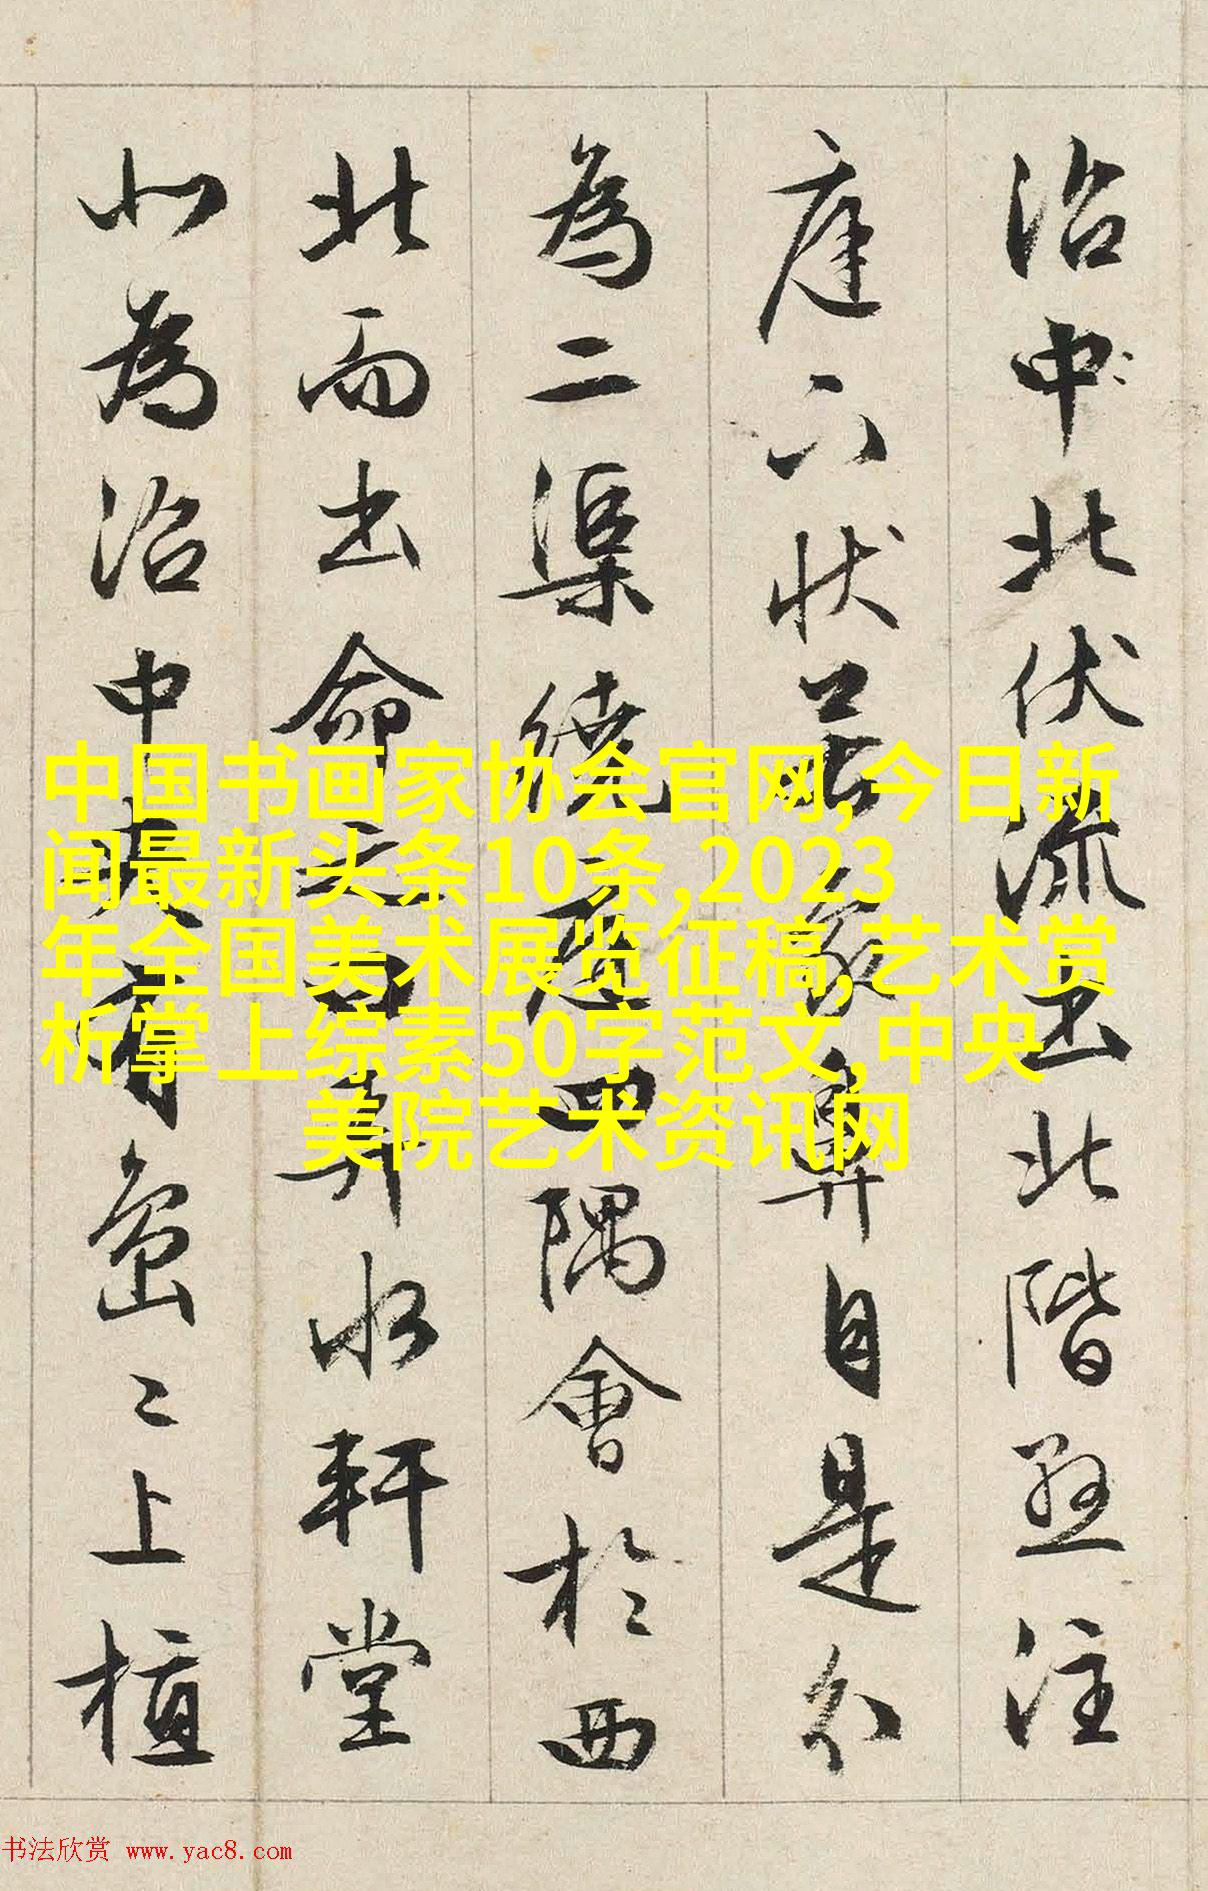 沼中北伏流出北階懸注
庭下状若象鼻自是分
為二渠繞庭四隅會於西
北而出命之曰弄水軒堂
北為沼中央有島〻上植
中国书画家协会官网,今日新
闻最新头条10条,2023
年全国美术展览征稿,艺术赏
析掌上综素50字范文,中央
美院艺术资讯网
书法欣赏 www.yac8.com